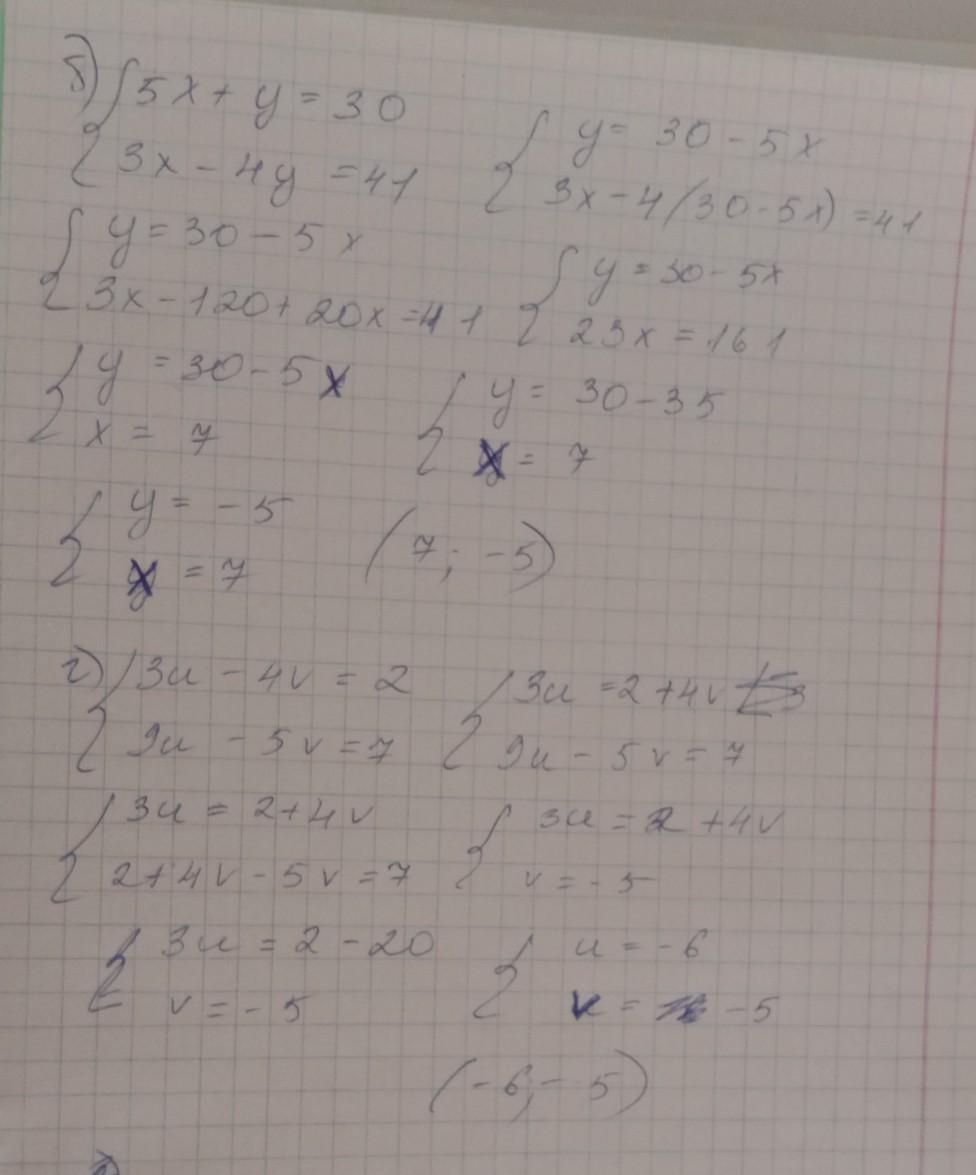 б) { 5x + y = 30
3x - 4y = 41
{ y = 30 - 5x
3x - 4(30 - 5x) = 41
{ y = 30 - 5x
3x - 120 + 20x = 41
{ y = 30 - 5x
23x = 161
{ y = 30 - 5x
x = 7
{ y = 30 - 35
x = 7
{ y = -5
x = 7
(7; -5)
г) { 3u - 4v = 2
9u - 5v = 7
{ 3u = 2 + 4v
9u - 5v = 7
{ 3u = 2 + 4v
2 + 4v - 5v = 7
{ 3u = 2 + 4v
v = -5
{ 3u = 2 - 20
v = -5
{ u = -6
v = -5
(-6; -5)